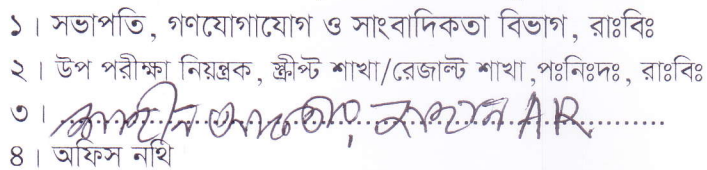 ১। সভাপতি, গণযোগাযোগ ও সাংবাদিকতা বিভাগ, রাঃবিঃ
২। উপ পরীক্ষা নিয়ন্ত্রক, স্ক্রীপ্ট শাখা/রেজাল্ট শাখা,পঃনিঃদঃ, রাঃবিঃ
৩। AR
৪। অফিস নথি